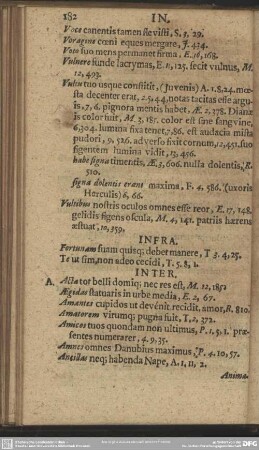 182 IN.
Voce canentis tamen flevisti, S. 5. 29.
Voragine cœni eques mergare, J. 434.
Voto suo mens permanet firma. E. 16, 168.
Vulnere funde lacrymas, E. 11, 125. fecit vulnus, M.
12, 493.
Vultu tuo usque constitit, (Juvenis) A. 1. 8. 24. mœ-
sta decenter erat, 2. 5, 44, notas tacitas esse argu-
is, 7, 6. pignora mentis habet. Æ. 2. 378. Dianæ
is color fuit, M. 3, 181. color est sine sangvine,
6, 304. lumina fixa tenet, 7, 86. est audacia mista
pudori, 9, 526. adverso fixit cornum, 12, 451. suo
figentem lumina vidit, 13, 456.
habe signa timentis, Æ. 3, 606. nulla dolentis, R.
510.
signa dolentis erant maxima, F. 4. 586. (uxoris
Herculis) 6, 66.
Vultibus nostris oculos omnes esse reor, E. 17, 148.
gelidis figens oscula, M. 4, 141. patriis hærens
æstuat, 10, 359.
INFRA.
Fortunam suam quisq; debet manere, T 3. 4, 25.
Te ut sim, non adeo cecidi, T. 5. 8, 1.
INTER.
A. Acta tot belli domiq; nec res est, M. 12, 185.
Ægidas statuaris in urbe media, E. 2, 67.
Amantes cupidos ut devēnit recidit amor, R. 810.
Amatorem virumq; pugna fuit, T. 2, 372.
Amicos tuos quondam non ultimus, P. 1. 5. 1. præ-
sentes numerarer, 4. 9. 35.
Amnes omnes Danubius maximus, P. 4. 10, 57.
Ancillas neq; habenda Nape, A. 1. 11, 2.
Anima.